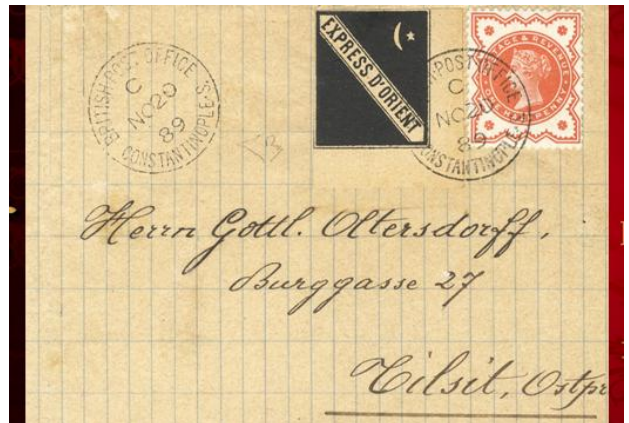 BRITISH POST OFFICE
C
NO 20
89
CONSTANTINOPLE.S.
EXPRESS D'ORIENT
POSTAGE & REVENUE
ONE HALF PENNY
POST OFFICE
C
NO 20
89
CONSTANTINOPLE
Herrn Gottl. Oltersdorff,
Burggasse 27
Tilsit, Ostpr